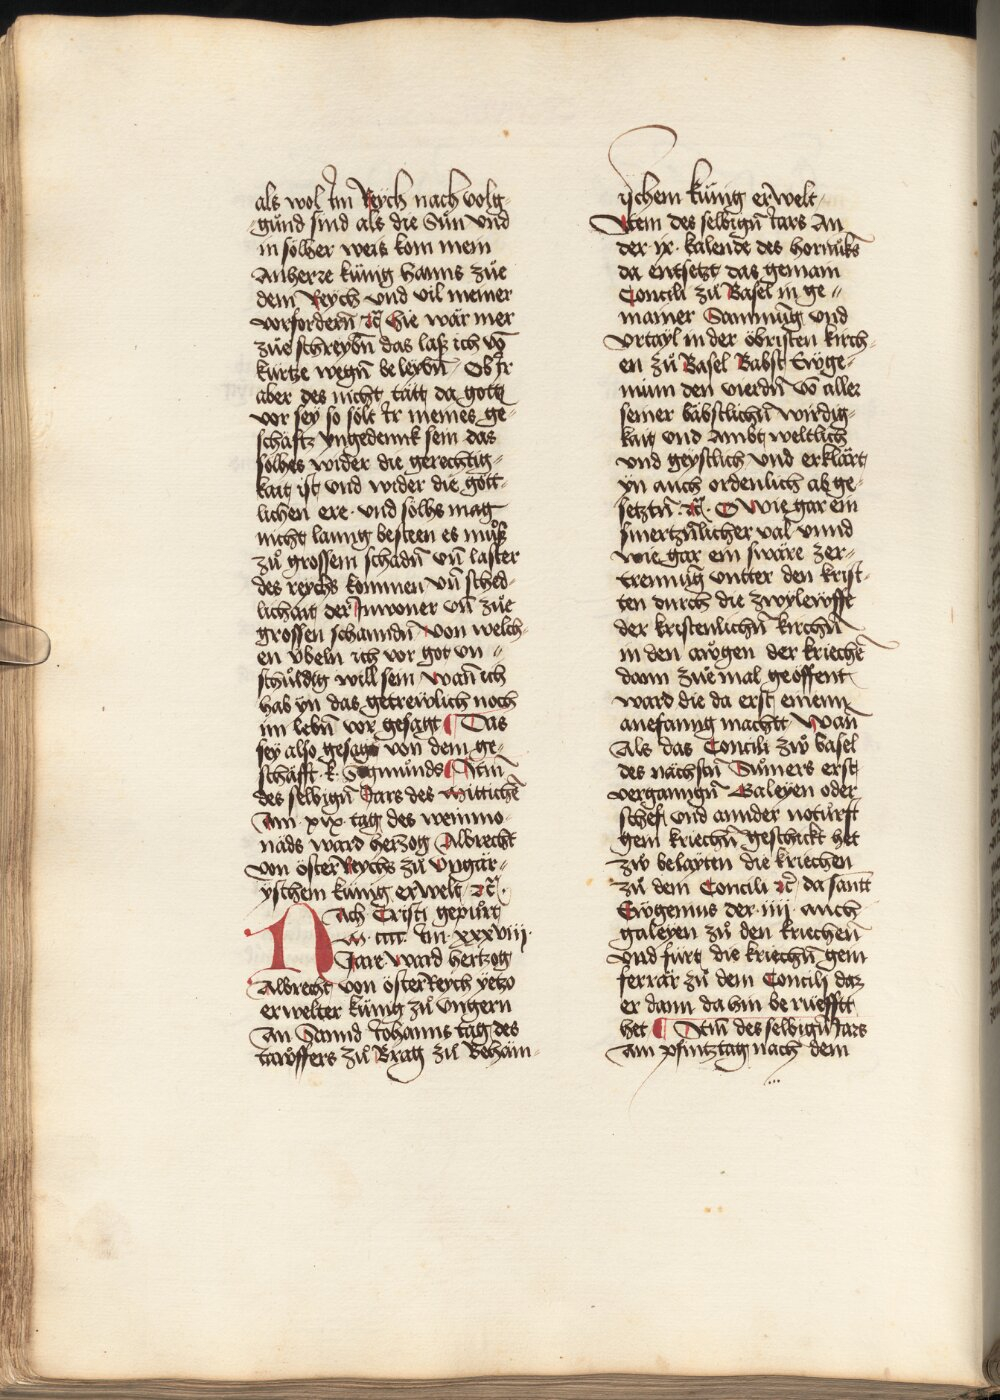 als wol Im Reych nach volg-
gund sind als die Sün vnd
in solher weis kom mein
Anherre künig hanns zue
dem Reych vnd vil meiner
vorfordern ꝛc hie wär mer
zue schreybn das lass ich võ
kürtze wegn beleybn Ob Ir
aber des nicht tätt da gott
vor sey so solt Ir meines ge-
schäftz yngedennk sein das
solhes wider die gerechtig-
kait ist vnd wider die gött-
lichen ere vnd solhs mag
nicht lanng besteen es müss
zu grossem schadn vn laster
des reychs kommen vn sched-
lichait der Inwoner vn zue
grossen schanndn von welch-
en vbeln ich vor got vn-
schuldig will sein wan ich
hab yn das getreẅlich noch
im lebn vor gesagt ¶ Das
sey also gesagt von dem ge-
schäfft k. Sigmunds ¶ Itm
des selbign Jars des Mittichẽ
Am xix tag des weinmo-
nads ward herzog Albrecht
von österReychs zu vngär-
yschem künig erwelt ꝛc.
Nach Cristi gepurt
M cccc Im xxxviij.
Jare ward hertzog
Albrecht von österReych yetzo
erwelter künig zu vngern
An Sannd Johanns tag des
tawffers zu Brag zu Behäm-
ischem künig erwelt
Item des selbign Jars An
der ix. kalende des hornuks
da entsetzt das gemain
Concili zu Basel in ge-
mainer Sammung vnd
vrtayl in der öbristen kirch-
en zu Basel Babst Ewge-
nium den vierdn võ aller
seiner bäbstlichn wirdig-
kait vnd Ambt weltlich
vnd geystlich vnd erklärt
yn auch ordenlich abge-
setztn ꝛc. O wie gar ein
smertznlicher val vnnd
wie gar ein swäre zer-
trennung vntter den krist-
ten durch die zwylewffe
der kristenlichn kirchn
in den awgen der kriechẽ
dann zue mal geoffent
ward die da erst einenn
anefanng machtt Wan
Als das Concili zw basel
des nächstn Sumers erst
verganngn Galeyen oder
scheff vnd annder noturft
gem kriechn geschickt het
zw belayten die kriechen
zu dem Concili ꝛc da sanntt
Ewgenius der iiij auch
galeyen zu den kriechen
vnd fürt die kriechn gem
ferrar zu dem Concili daz
er dann da hin beruefftt
het ¶ Itm des selbign Jars
am pfintztag nach dem